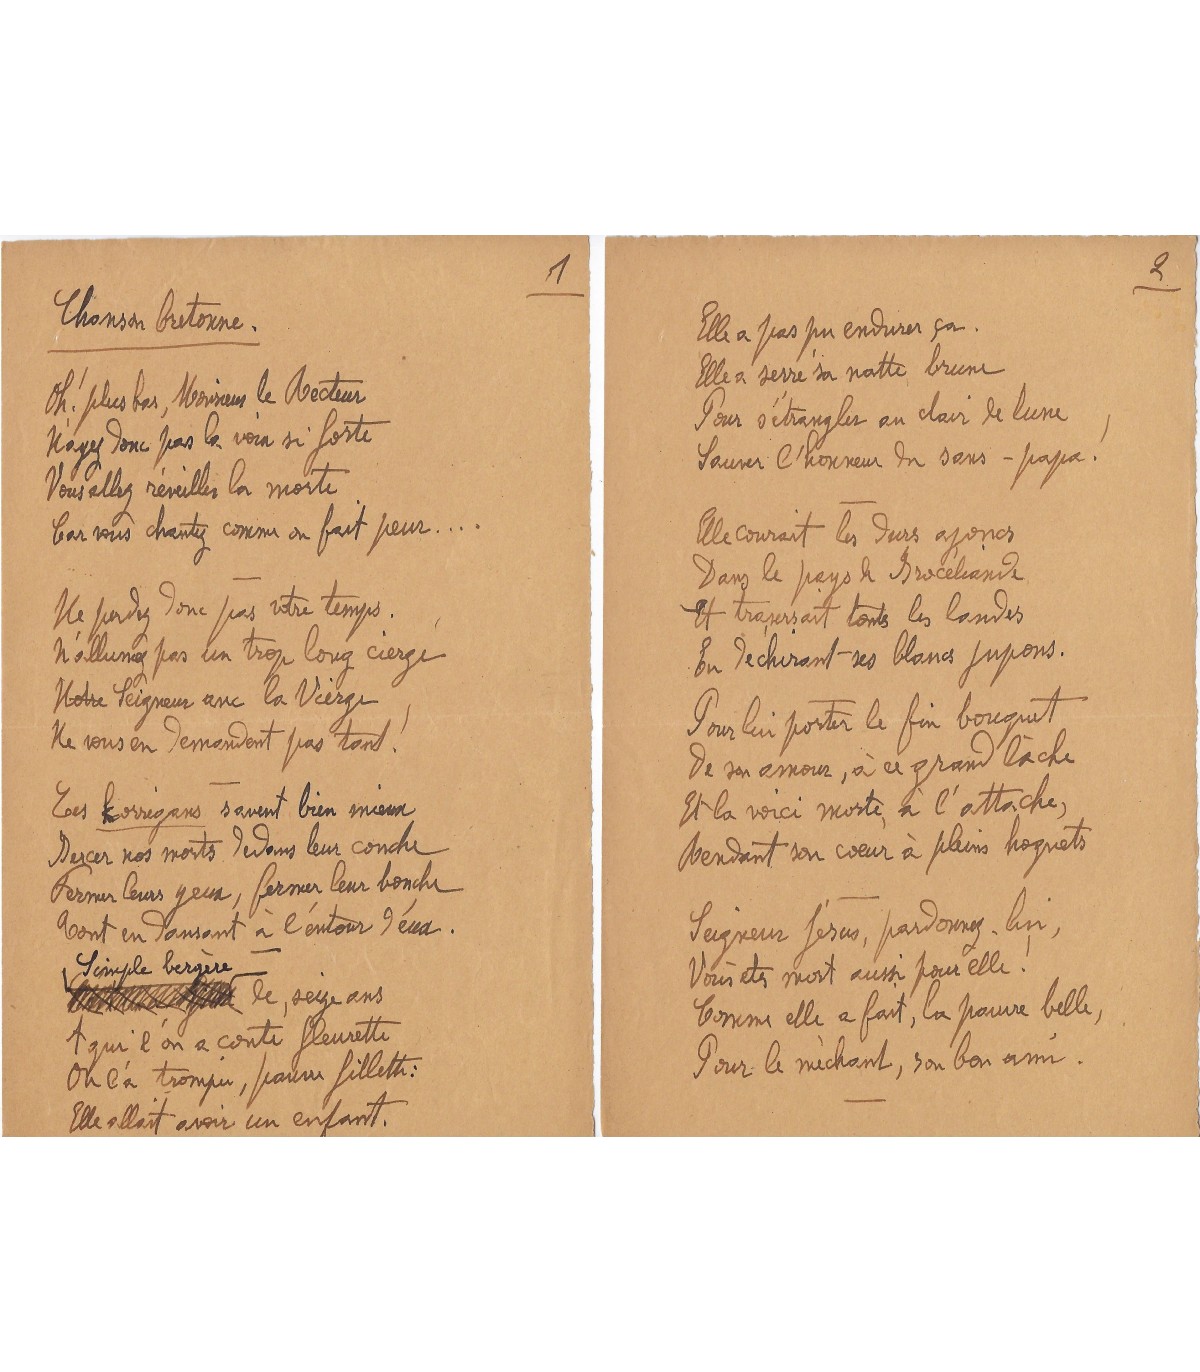 1
Chanson bretonne.
Oh! plus bas, Monsieur le Recteur
N'ayez donc pas la voix si forte
Vous allez réveiller la morte
Car vous chantez comme on fait peur....
Ne perdez donc pas votre temps.
N'allumez pas un trop long cierge
Notre Seigneur avec la Vierge
Ne vous en demandent pas tant!
Les Korrigans savent bien mieux
Bercer nos morts dedans leur couche
Fermer leurs yeux, fermer leur bouche
Tout en dansant à l'entour d'eux.
Simple bergère
de, seize ans
A qui l'on a conté fleurette
On l'a trompée, pauvre fillette:
Elle allait avoir un enfant.
2
Elle a pas pu endurer ça.
Elle a serré sa natte brune
Pour s'étrangler au clair de lune
Sauver l'honneur du sans-papa!
Elle courait les durs ajoncs
Dans le pays de Brocéliande
Et traversait toutes les landes
En déchirant ses blancs jupons.
Pour lui porter le fin bouquet
De son amour, à ce grand lâche
Et la voici morte, à l'attache,
Rendant son coeur à pleins hoquets
Seigneur Jésus, pardonnez-lui,
Vous êtes mort aussi pour elle!
Comme elle a fait, la pauvre belle,
Pour le méchant, son bon ami.